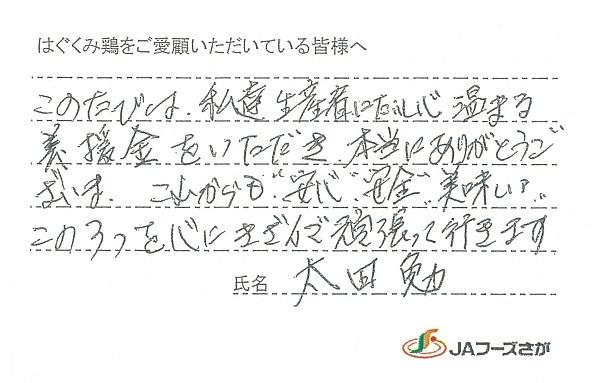 はぐくみ鶏をご愛顧いただいている皆様へ
このたびは、私達生産者にたいし心温まる
義援金をいただき 本当にありがとうご
ざいま これからも"安心""安全""美味しい"
この3つを心にきざんで頑張って行きます
氏名 太田 勉
JAフーズさが